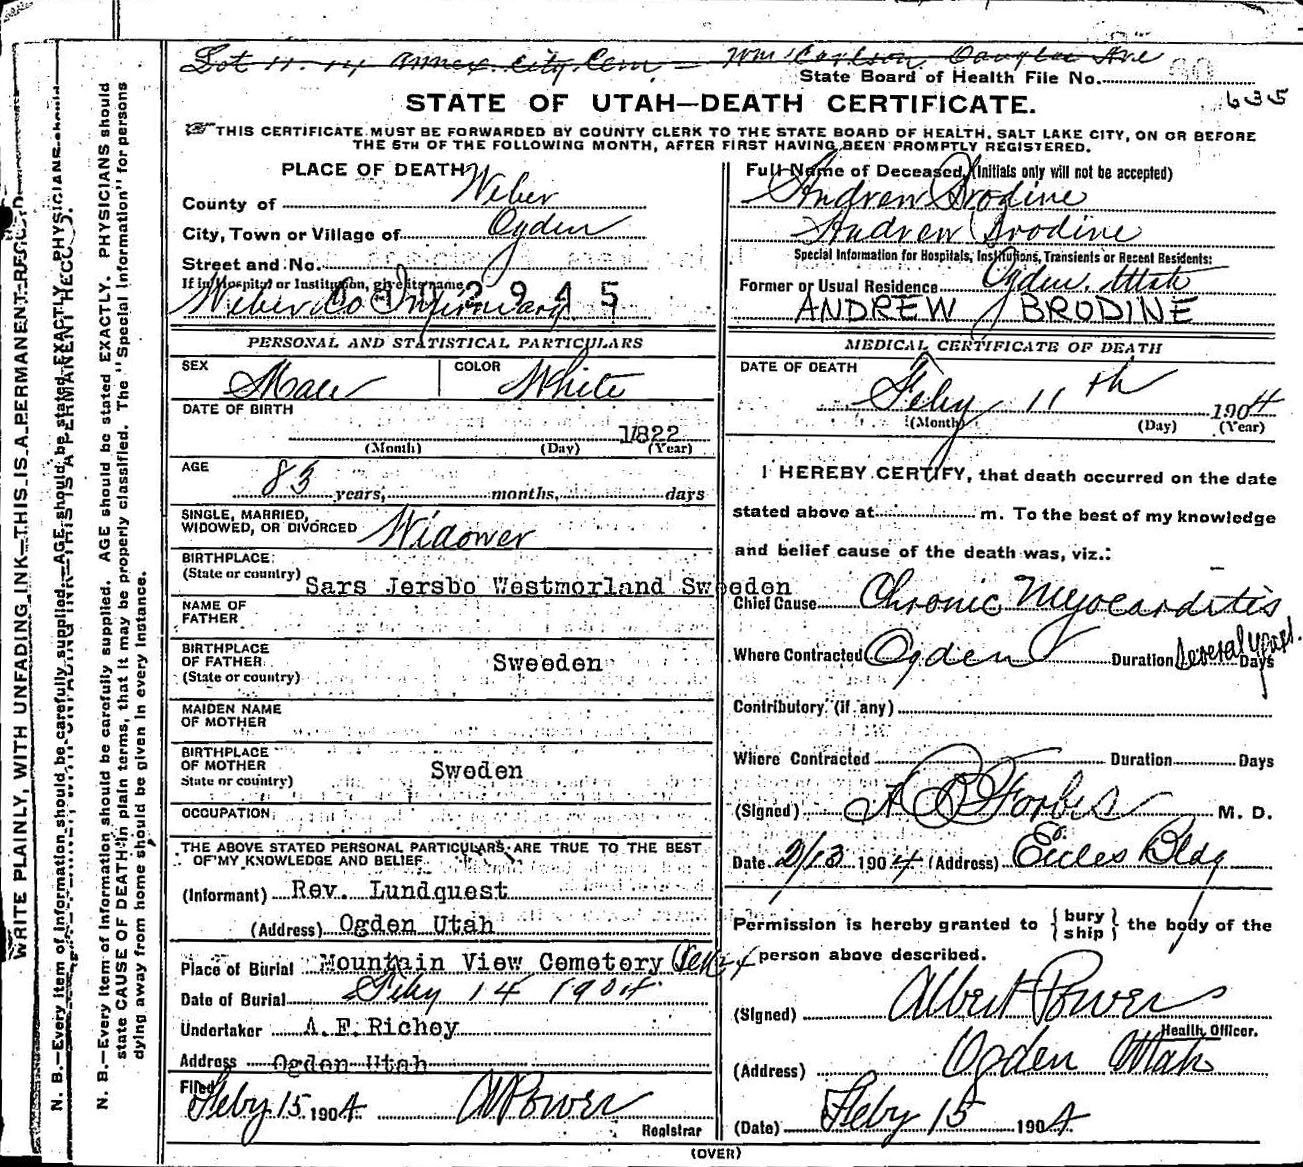 Lot 11. 14 Annex. City Cem — Wm Carlson Douglas Ave
State Board of Health File No. 80
635
STATE OF UTAH—DEATH CERTIFICATE.
THIS CERTIFICATE MUST BE FORWARDED BY COUNTY CLERK TO THE STATE BOARD OF HEALTH, SALT LAKE CITY, ON OR BEFORE
THE 5TH OF THE FOLLOWING MONTH, AFTER FIRST HAVING BEEN PROMPTLY REGISTERED.
PLACE OF DEATH
County of Weber
City, Town or Village of Ogden
Street and No.
If in Hospital or Institution, give its name
2945
Weber Co Infirmary
Full Name of Deceased (Initials only will not be accepted)
Andrew Brodine
Andrew Brodine
Special Information for Hospitals, Institutions, Transients or Recent Residents:
Former or Usual Residence Ogden, Utah
ANDREW BRODINE
PERSONAL AND STATISTICAL PARTICULARS
SEX Male COLOR White
DATE OF BIRTH
1822
(Month) (Day) (Year)
AGE
83 years, months, days
SINGLE, MARRIED,
WIDOWED, OR DIVORCED Widower
BIRTHPLACE
(State or country) Sars Jersbo Westmorland Sweeden
NAME OF
FATHER
BIRTHPLACE
OF FATHER Sweeden
(State or country)
MAIDEN NAME
OF MOTHER
BIRTHPLACE
OF MOTHER Sweden
State or country)
OCCUPATION
THE ABOVE STATED PERSONAL PARTICULARS ARE TRUE TO THE BEST
OF MY KNOWLEDGE AND BELIEF
(Informant) Rev. Lundquest
(Address) Ogden Utah
Place of Burial Mountain View Cemetery
Date of Burial Feby 14 1904
Undertaker A. E. Richey
Address Ogden Utah
Filed
Feby 15 1904 A Power
Registrar
MEDICAL CERTIFICATE OF DEATH
DATE OF DEATH
Feby 11th 1904
(Month) (Day) (Year)
I HEREBY CERTIFY, that death occurred on the date
stated above at m. To the best of my knowledge
and belief cause of the death was, viz.:
Chief Cause Chronic Myocarditis
Where Contracted Ogden Duration Several years. Days
Contributory (if any)
Where Contracted Duration Days
(Signed) Forbes M. D.
Date 2/13 1904 (Address) Eccles Bldg
Permission is hereby granted to {bury
ship} the body of the
person above described.
(Signed) Albert Power
Health Officer.
(Address) Ogden Utah
(Date) Feby 15 1904
(OVER)
WRITE PLAINLY, WITH UNFADING INK—THIS IS A PERMANENT RECORD.
N. B.—Every item of information should be carefully supplied. AGE should be stated EXACTLY. PHYSICIANS should
N. B.—Every item of information should be carefully supplied. AGE should be stated EXACTLY. PHYSICIANS should
state CAUSE OF DEATH in plain terms, that it may be properly classified. The "Special Information" for persons
dying away from home should be given in every instance.